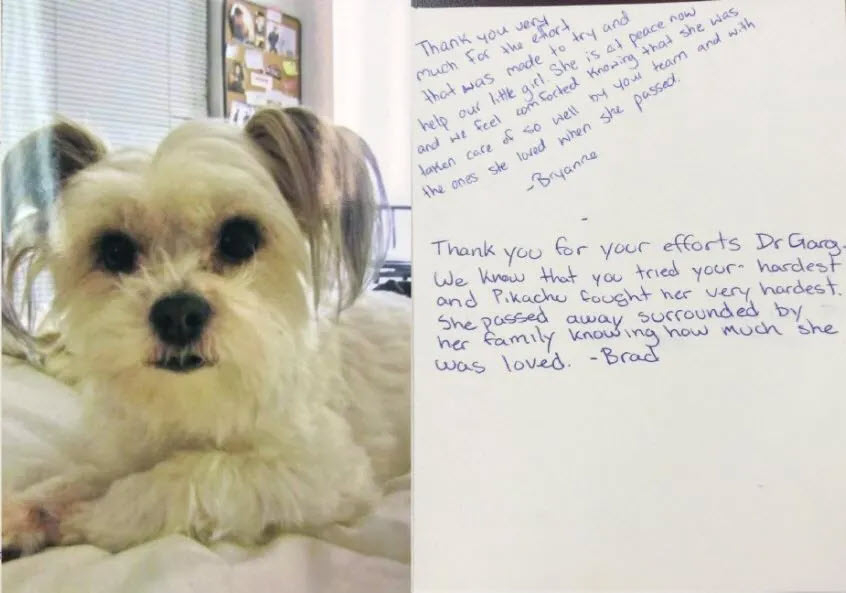 Thank you very
much for the effort
that was made to try and
help our little girl. She is at peace now
and we feel comforted knowing that she was
taken care of so well by your team and with
the ones she loved when she passed.
-Bryanne
Thank you for your efforts Dr Garg.
We know that you tried your hardest
and Pikachu fought her very hardest.
She passed away surrounded by
her family knowing how much she
was loved. -Brad